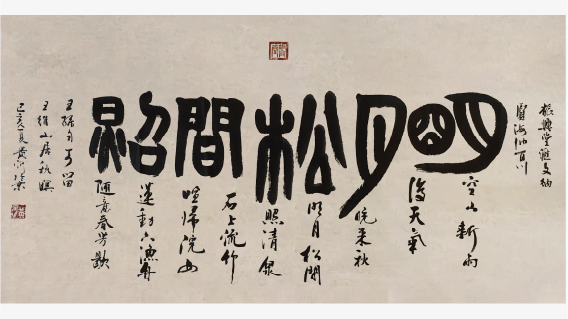 明月松間照
空山新雨
後天氣
晚來秋
明月松間
照清泉
石上流竹
喧歸浣女
蓮動下漁舟
隨意春芳歇
王孫自可留
王維山居秋暝
己亥夏